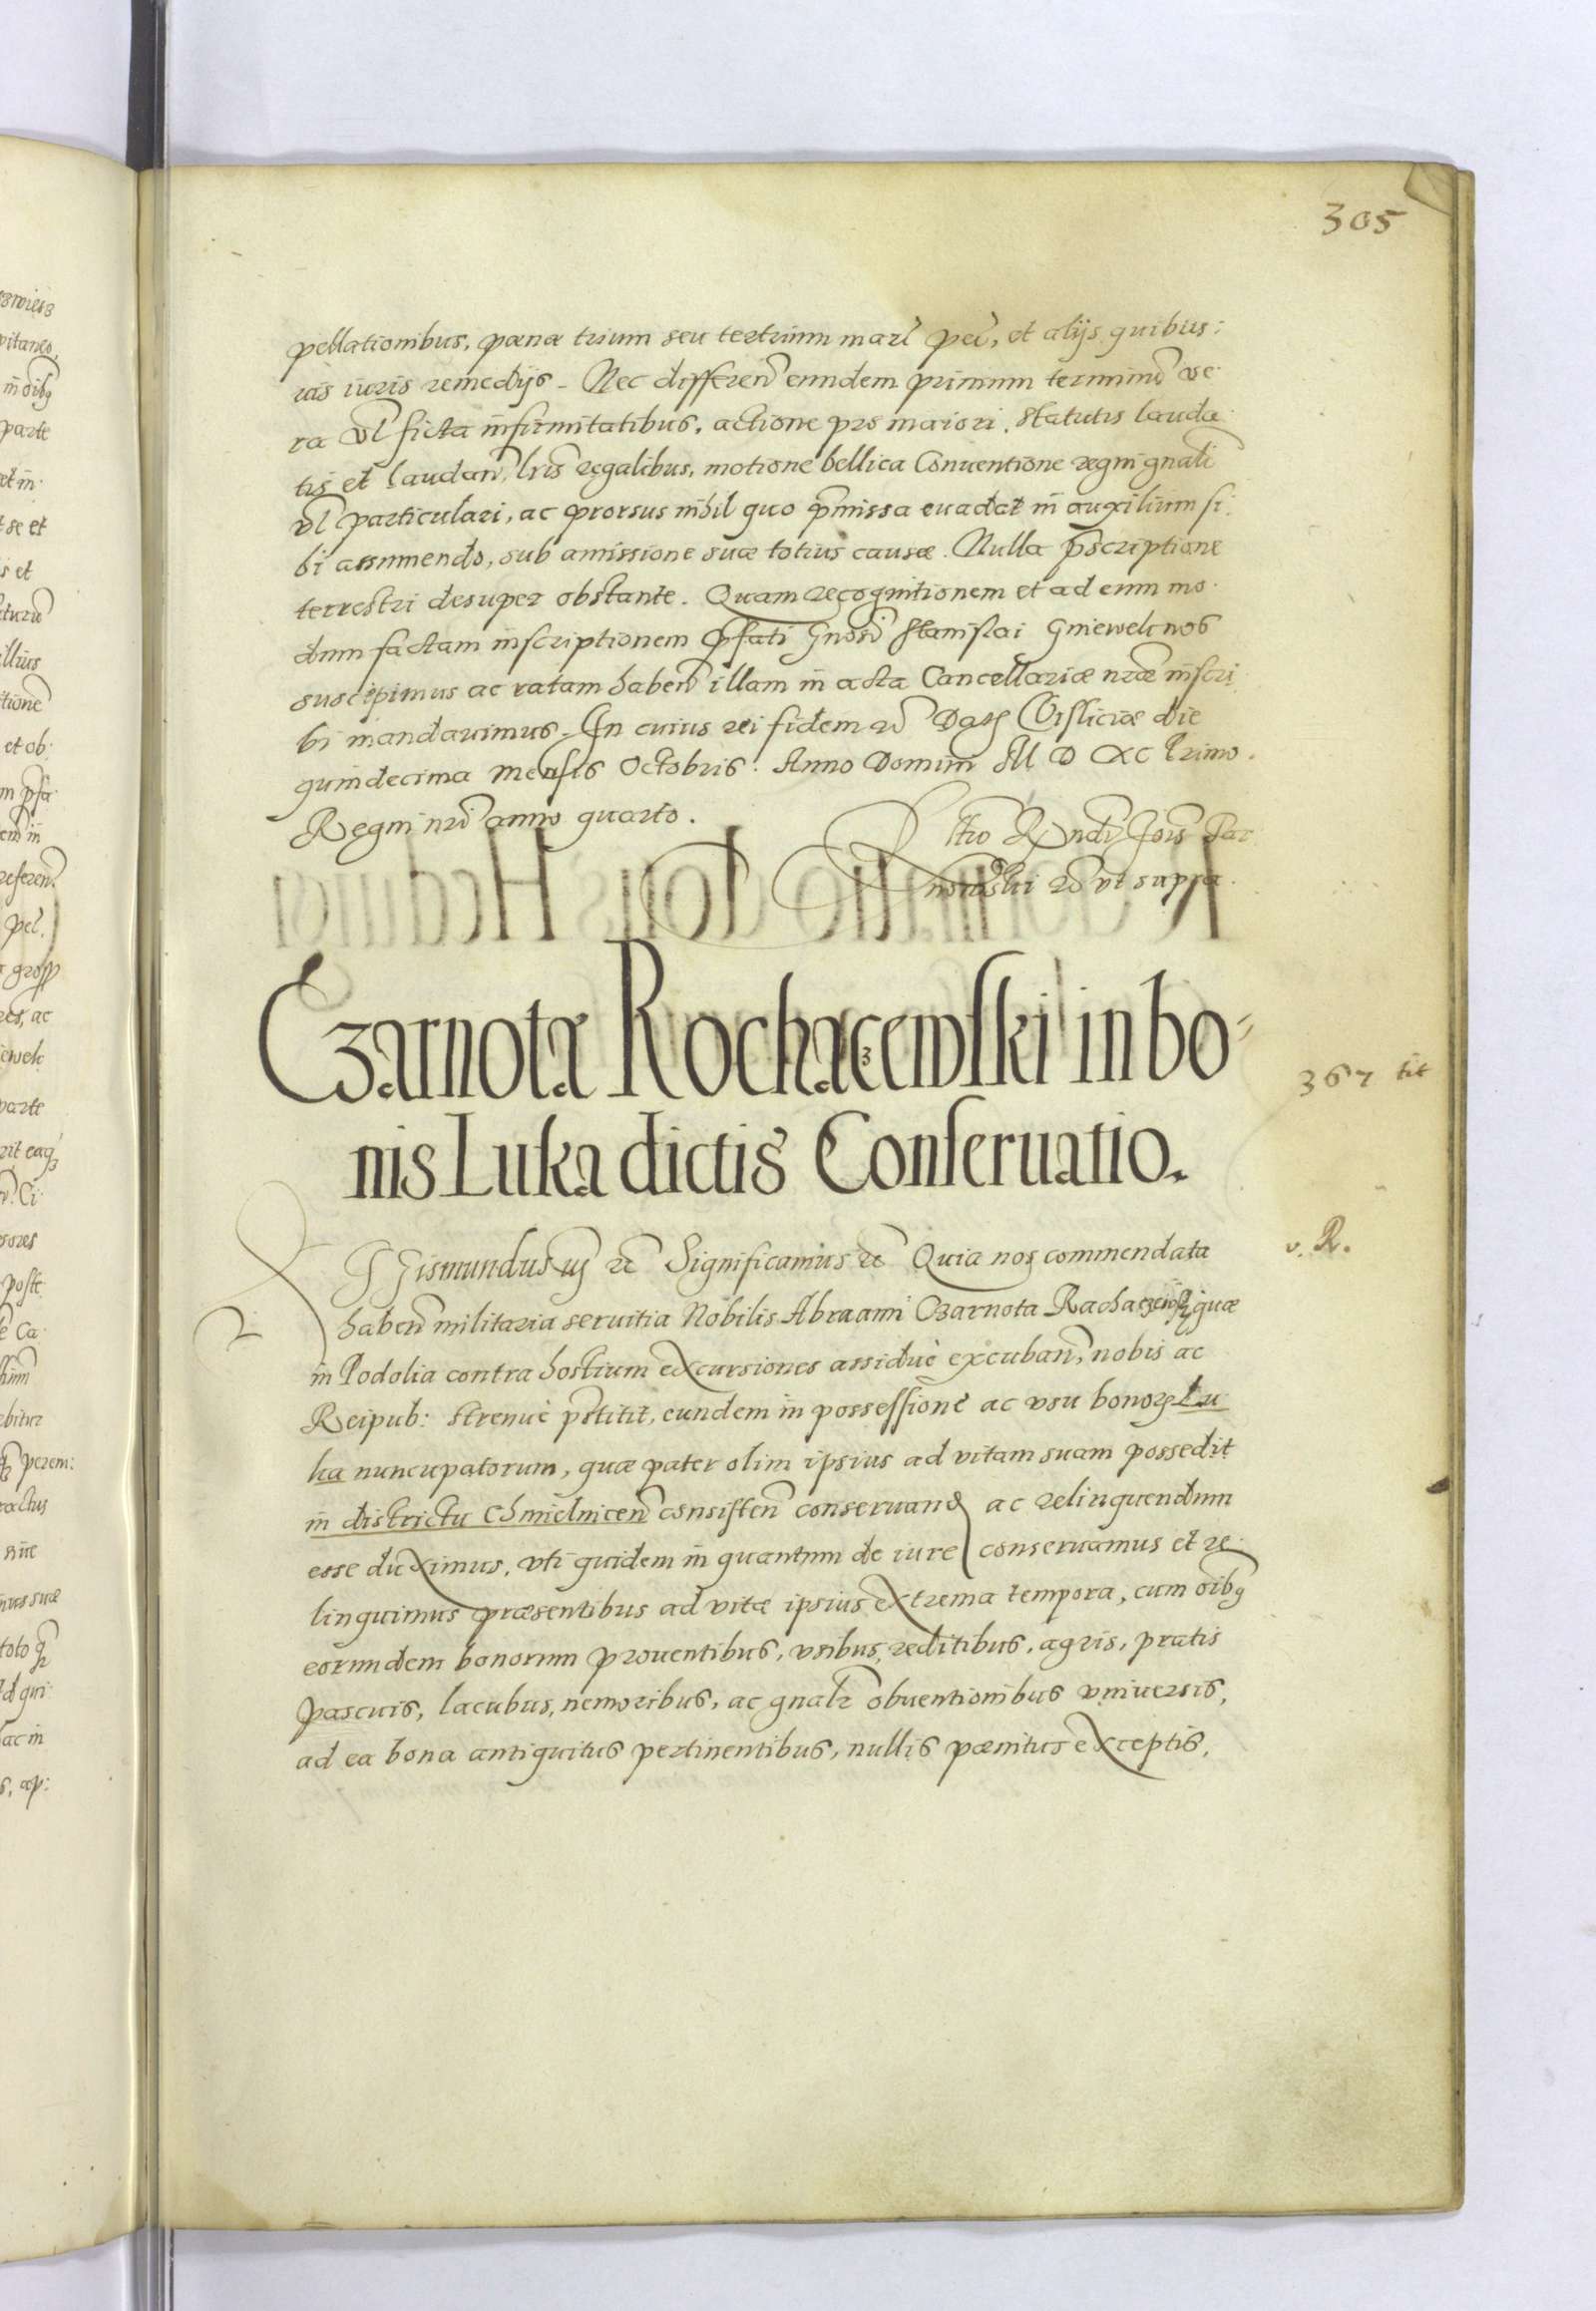 305
pellationibus, pœna trium seu tertium marc̃ pec̃, et alijs quibus:
uis iuris remedijs. Nec differen̄ eundem primum terminū ve:
ra vl̄ ficta infirmitatibus, actione pro maiori, statutis lauda:
tis et laudan̄, lris̃ regalibus, motione bellica Conuentione regni gnali
vl̄ particulari, ac prorsus nihil quo p̄missa euadat in auxilium si:
bi assumendo, sub amissione suæ totius causæ. Nulla p̄scriptione
terrestri desuper obstante. Quam recognitionem et ad eum mo:
dum factam inscriptionem p̄fati Gnosi Stanislai Gniewek nos
suscipimus ac ratam haben̄ illam in acta Cancellariæ nr̄æ inscri:
bi mandauimus. In cuius rei fidem
Visliciæ die
quindecima mensis Octobris. Anno Domini M D XC Primo.
Regni nr̄i anno quarto.
Rndi Jois Tar
nowski ut supra.
Czarnotæ Rochaczewski in bo-
nis Luka dictis Conseruatio.
367 tit
v. R.
Sigismundus iij rc̄ Significamus rc̄ Quia nos commendata
haben̄ militaria seruitia Nobilis Abraami Czarnota quæ
in Podolia contra hostium excursiones assiduè excuban̄, nobis ac
Reipub: strenuè p̄stitit, eundem in possessione ac vsu bonoꝝ Lu
ka nuncupatorum, quæ pater olim ipsius ad vitam suam possedit
in districtu Chmielnicen̄ consisten̄ conseruand ac relinquendum
esse duximus, vti quidem in quantum de iure conseruamus et re:
linquimus præsentibus ad vitæ ipsius extrema tempora, cum oibꝯ
eorundem bonorum prouentibus, vsibus, reditibus, agris, pratis
pascuis, lacubus, nemoribus, ac gnalr obuentionibus vniuersis,
ad ea bona antiquitus pertinentibus, nullis pœnitus exceptis,